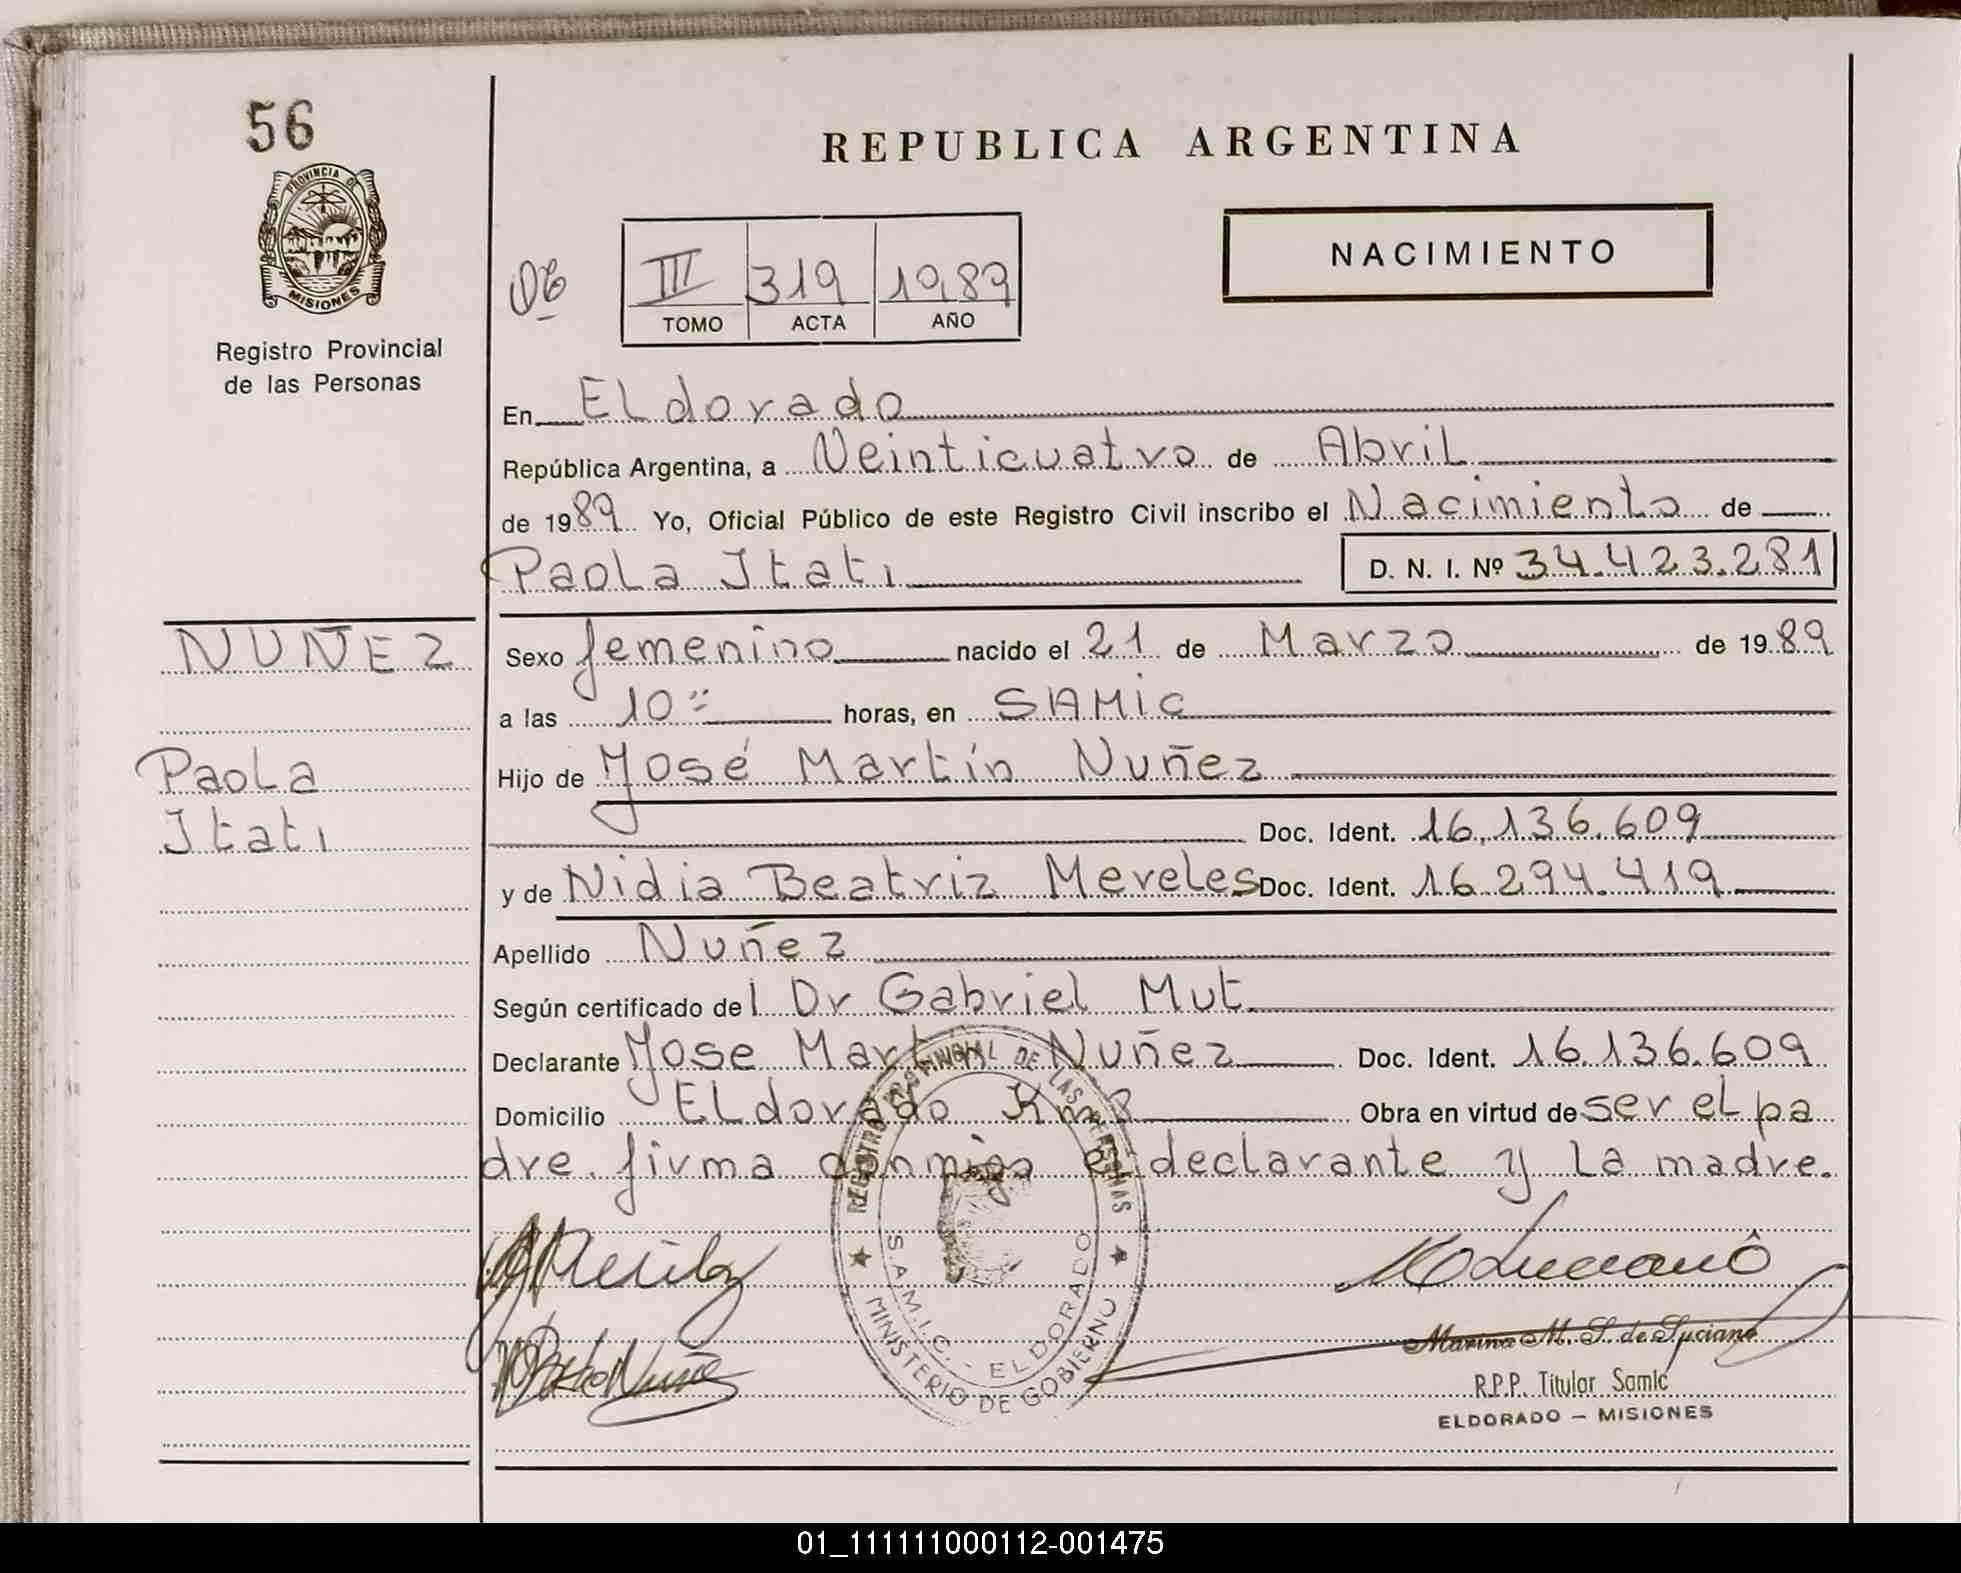 56
REPUBLICA ARGENTINA
PROVINCIA DE
MISIONES
Registro Provincial
de las Personas
III 319 1989
TOMO ACTA AÑO
NACIMIENTO
En ELdorado
República Argentina, a Veinticuatro de AbriL
de 1989 Yo, Oficial Público de este Registro Civil inscribo el Nacimiento de
PaoLa Itati
D. N. I. Nº 34.423.281
NUÑEZ
PaoLa
Itati
Sexo femenino nacido el 21 de Marzo de 1989
a las 10 horas, en SAMic
Hijo de José Martín Nuñez
Doc. Ident. 16.136.609
y de Nidia Beatriz MereLes Doc. Ident. 16.294.419
Apellido Nuñez
Según certificado del Dr Gabriel Mut
Declarante Jose Martin Nuñez Doc. Ident. 16.136.609
Domicilio ELdorado Km 8 Obra en virtud de ser eL pa
dre. firma conmigo el declarante y La madre.
REGISTRO PROVINCIAL DE LAS PERSONAS
S.A.M.I.C. - ELDORADO
MINISTERIO DE GOBIERNO
Marina M. S. de Luciano
R.P.P. Titular Samic
ELDORADO – MISIONES
01_111111000112-001475